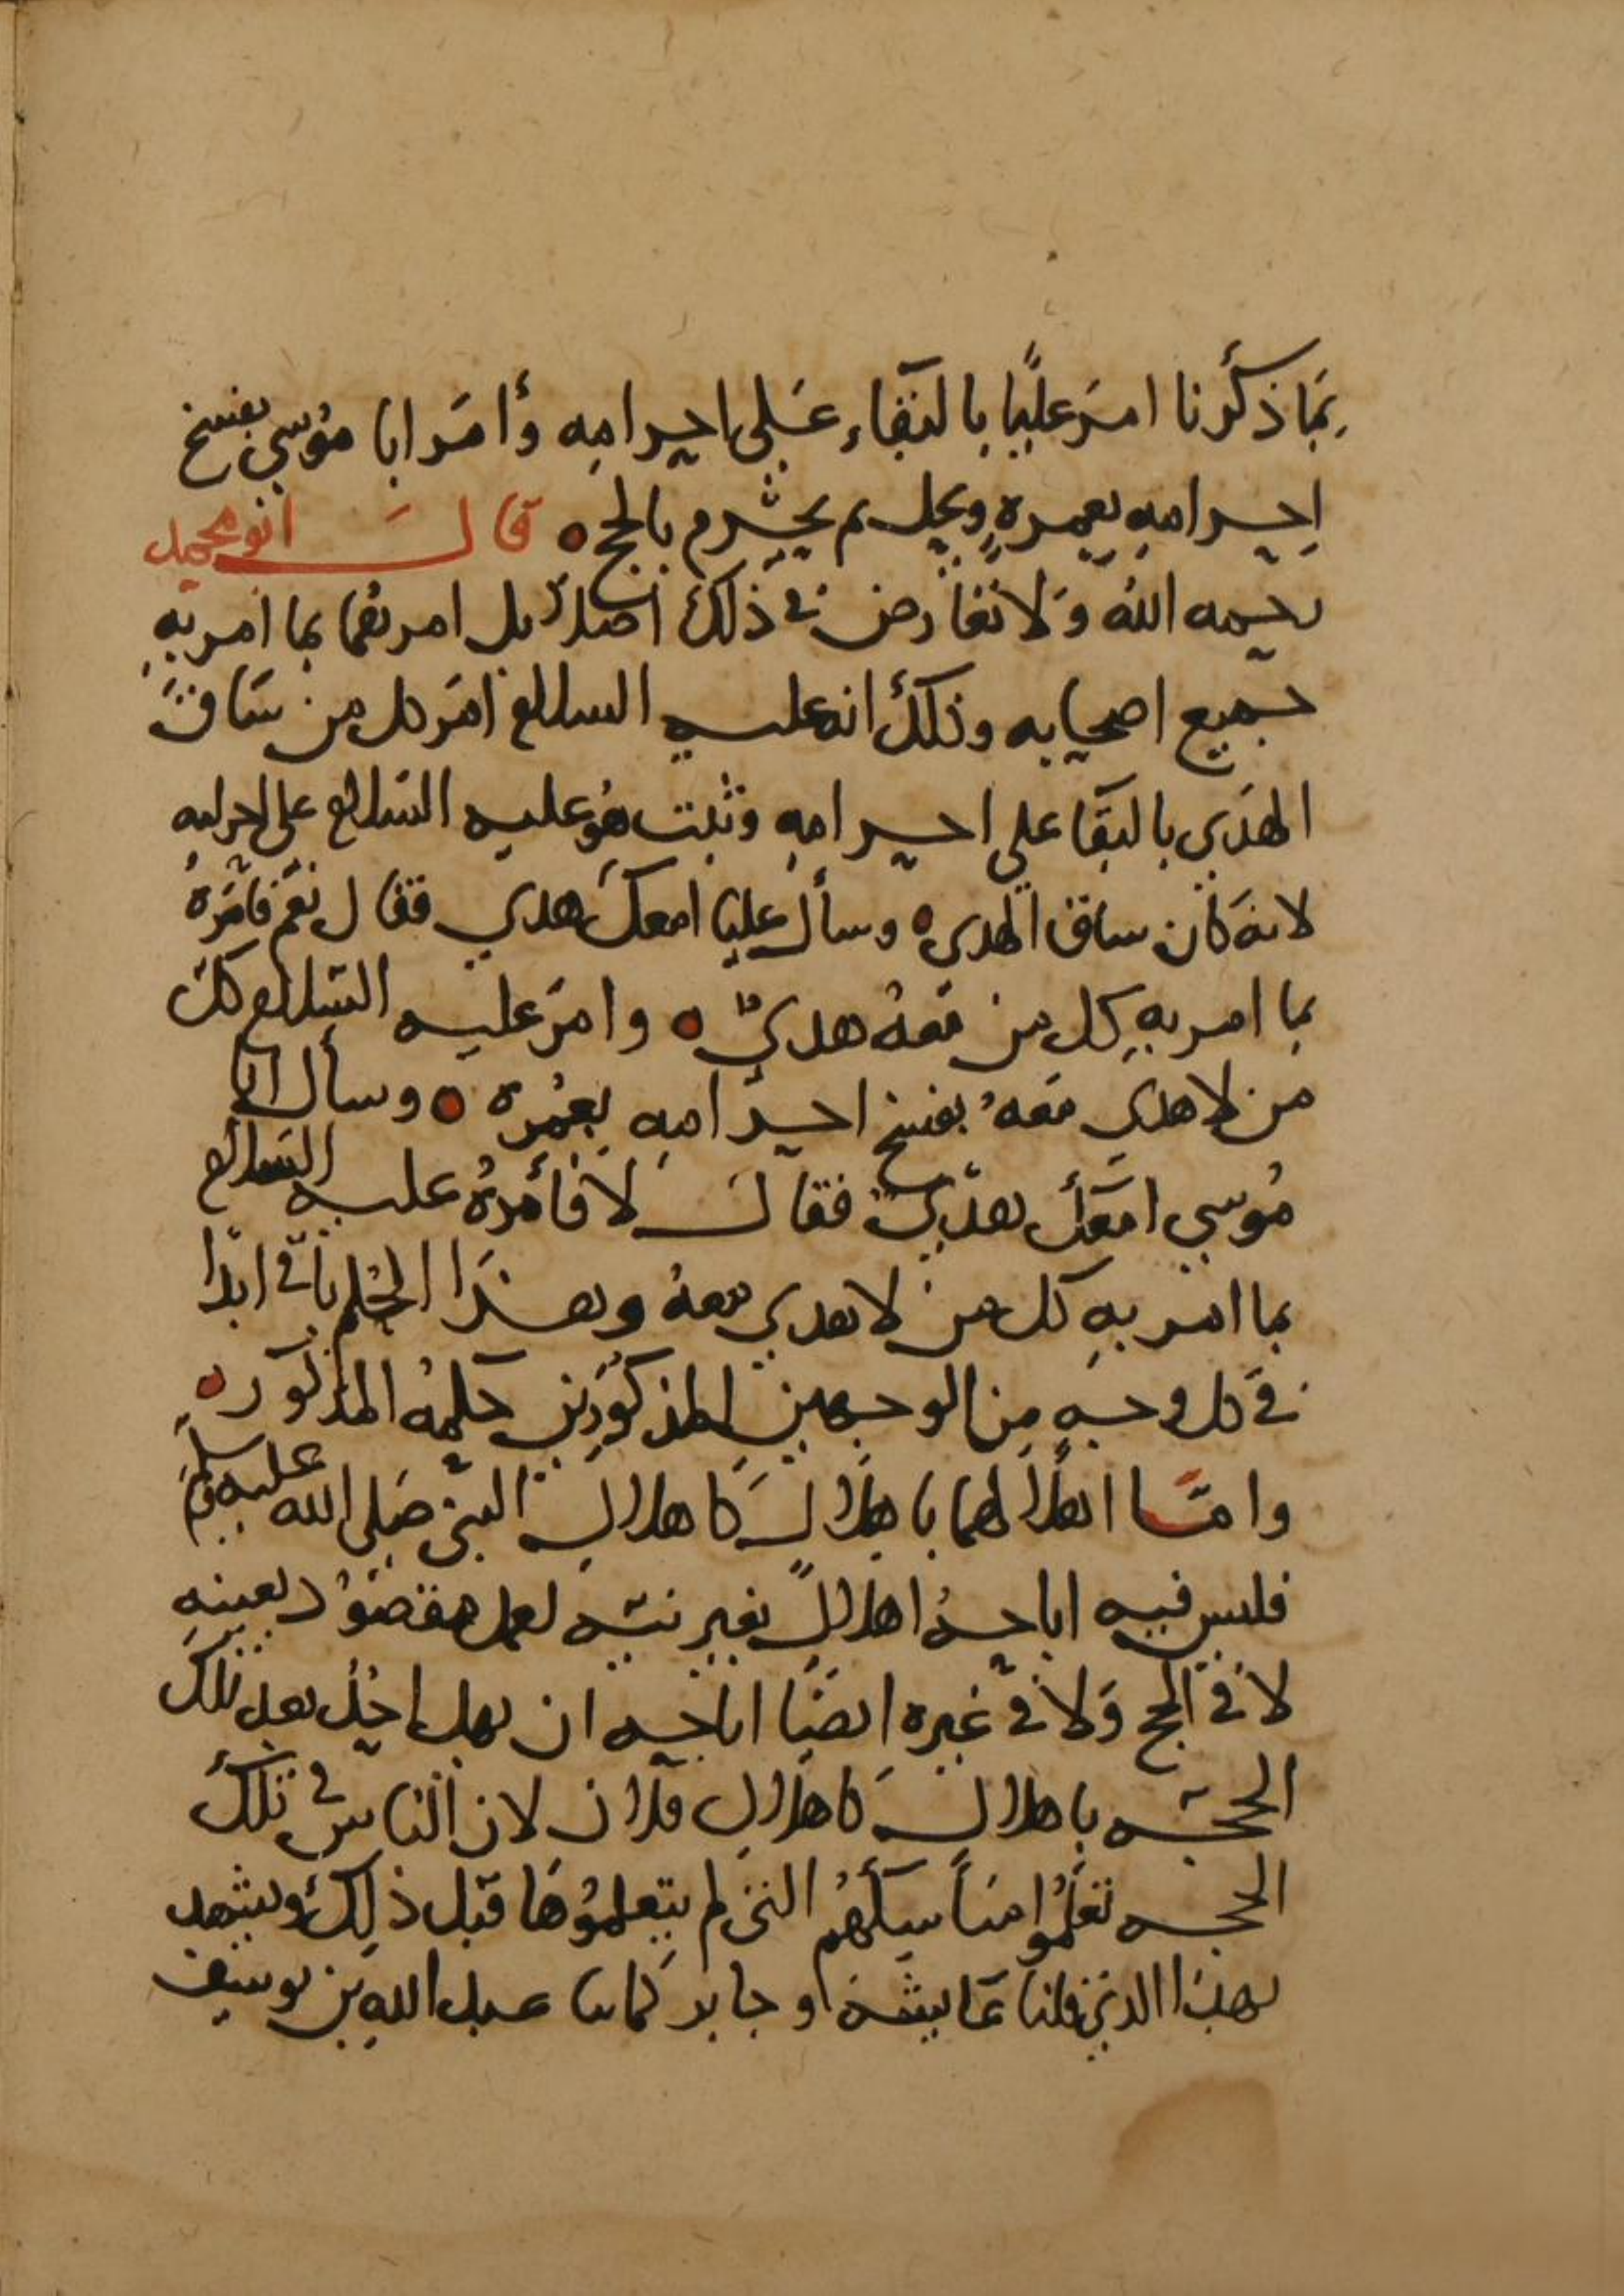 بما ذكرنا امر عليًا بالبقاء على احرامه وأمر ابا موسي بفسخ
احرامه بعمرة ويحل ثم يحرم بالحج ه قال ابو محمد
رحمه الله ولا تعارض في ذلك اصلا بل امرهما بما امر به
جميع اصحابه وذلك انه عليه السلام امر كل من ساق
الهدي بالبقا علي احرامه وثبت هو عليه السلام على احرامه
لانه كان ساق الهدي ه وسأل عليا امعك هدي فقال نعم فامره
بما امر به كل من معه هدي ه وامر عليه السلام كل
من لا هدي معه بفسخ احرامه بعمرة ه وسأل ابا
موسي امعك هدي فقال لا فأمره عليه السلام
بما امر به كل من لا هدي معه وهذا الحكم باق ابدا
في كل وجه من الوجهين المذكورين حكمه المذكور ه
وامّا اهلالهما باهلال كاهلال النبي صلى الله عليه وسلم
فليس فيه اباحة اهلال بغير نية لعمل مقصود بعينه
لا في الحج ولا في غيره ايضا اباحة ان يهل احد بعد تلك
الحجة باهلال كاهلال فلان لان الناس في تلك
الحجة تعلموا مناسكهم التي لم يتعلموها قبل ذلك ويشهد
بهذا الذي قلنا عايشة وجابر كما نا عبد الله بن يوسف